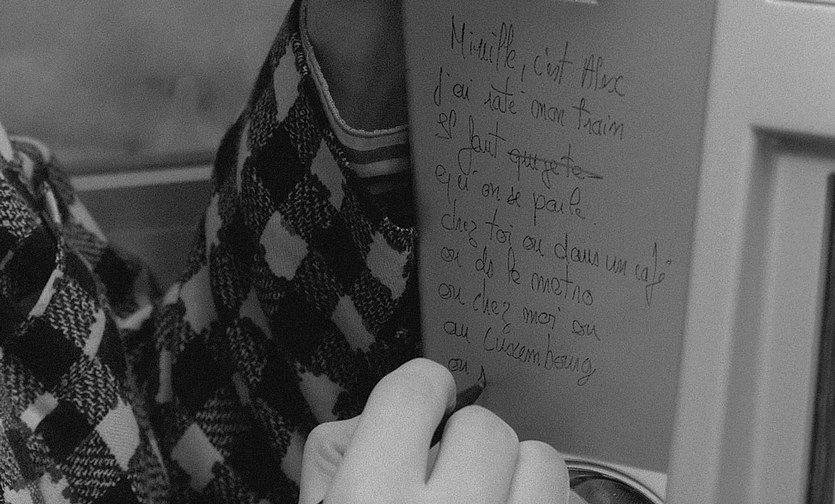 Mireille, c'est Alex
J'ai raté mon train
Il faut que je te
qu'on se parle
chez toi ou dans un café
ou ds le metro
ou chez moi ou
au Luxembourg
ou s